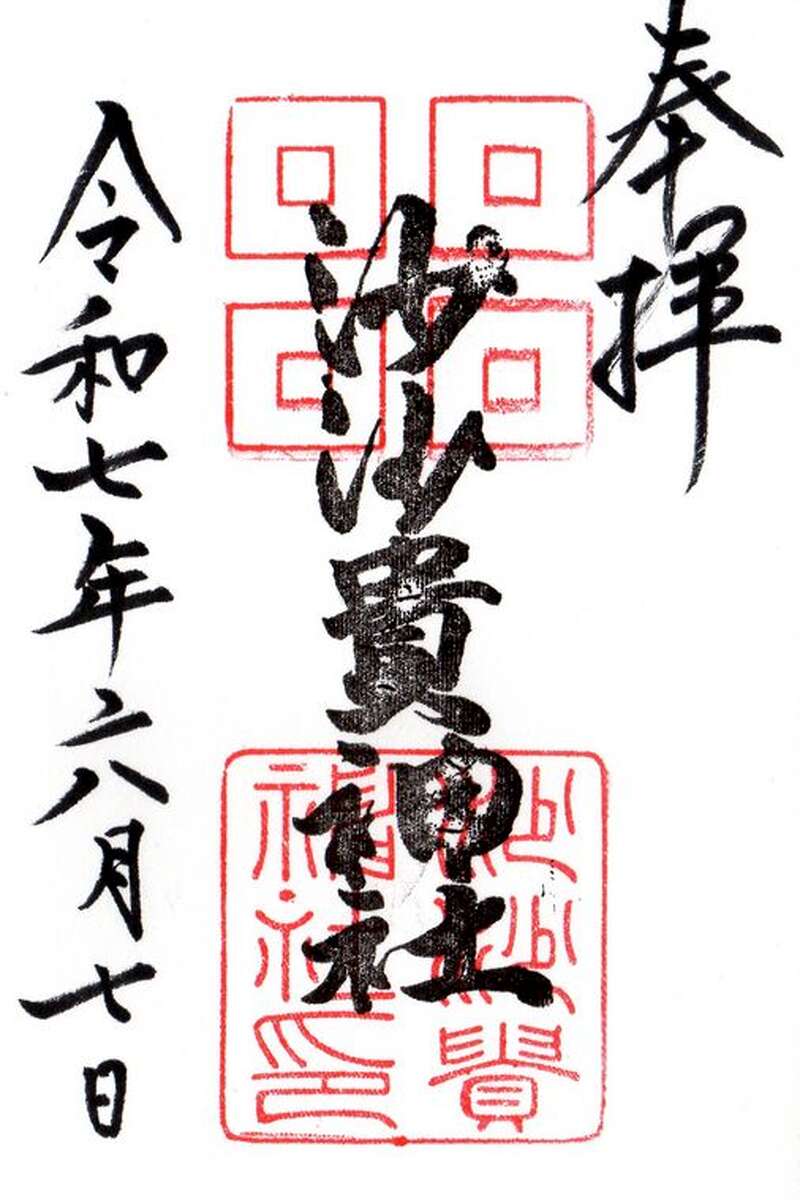 奉拝
沙沙貴神社
沙沙貴
神社印
令和七年六月七日